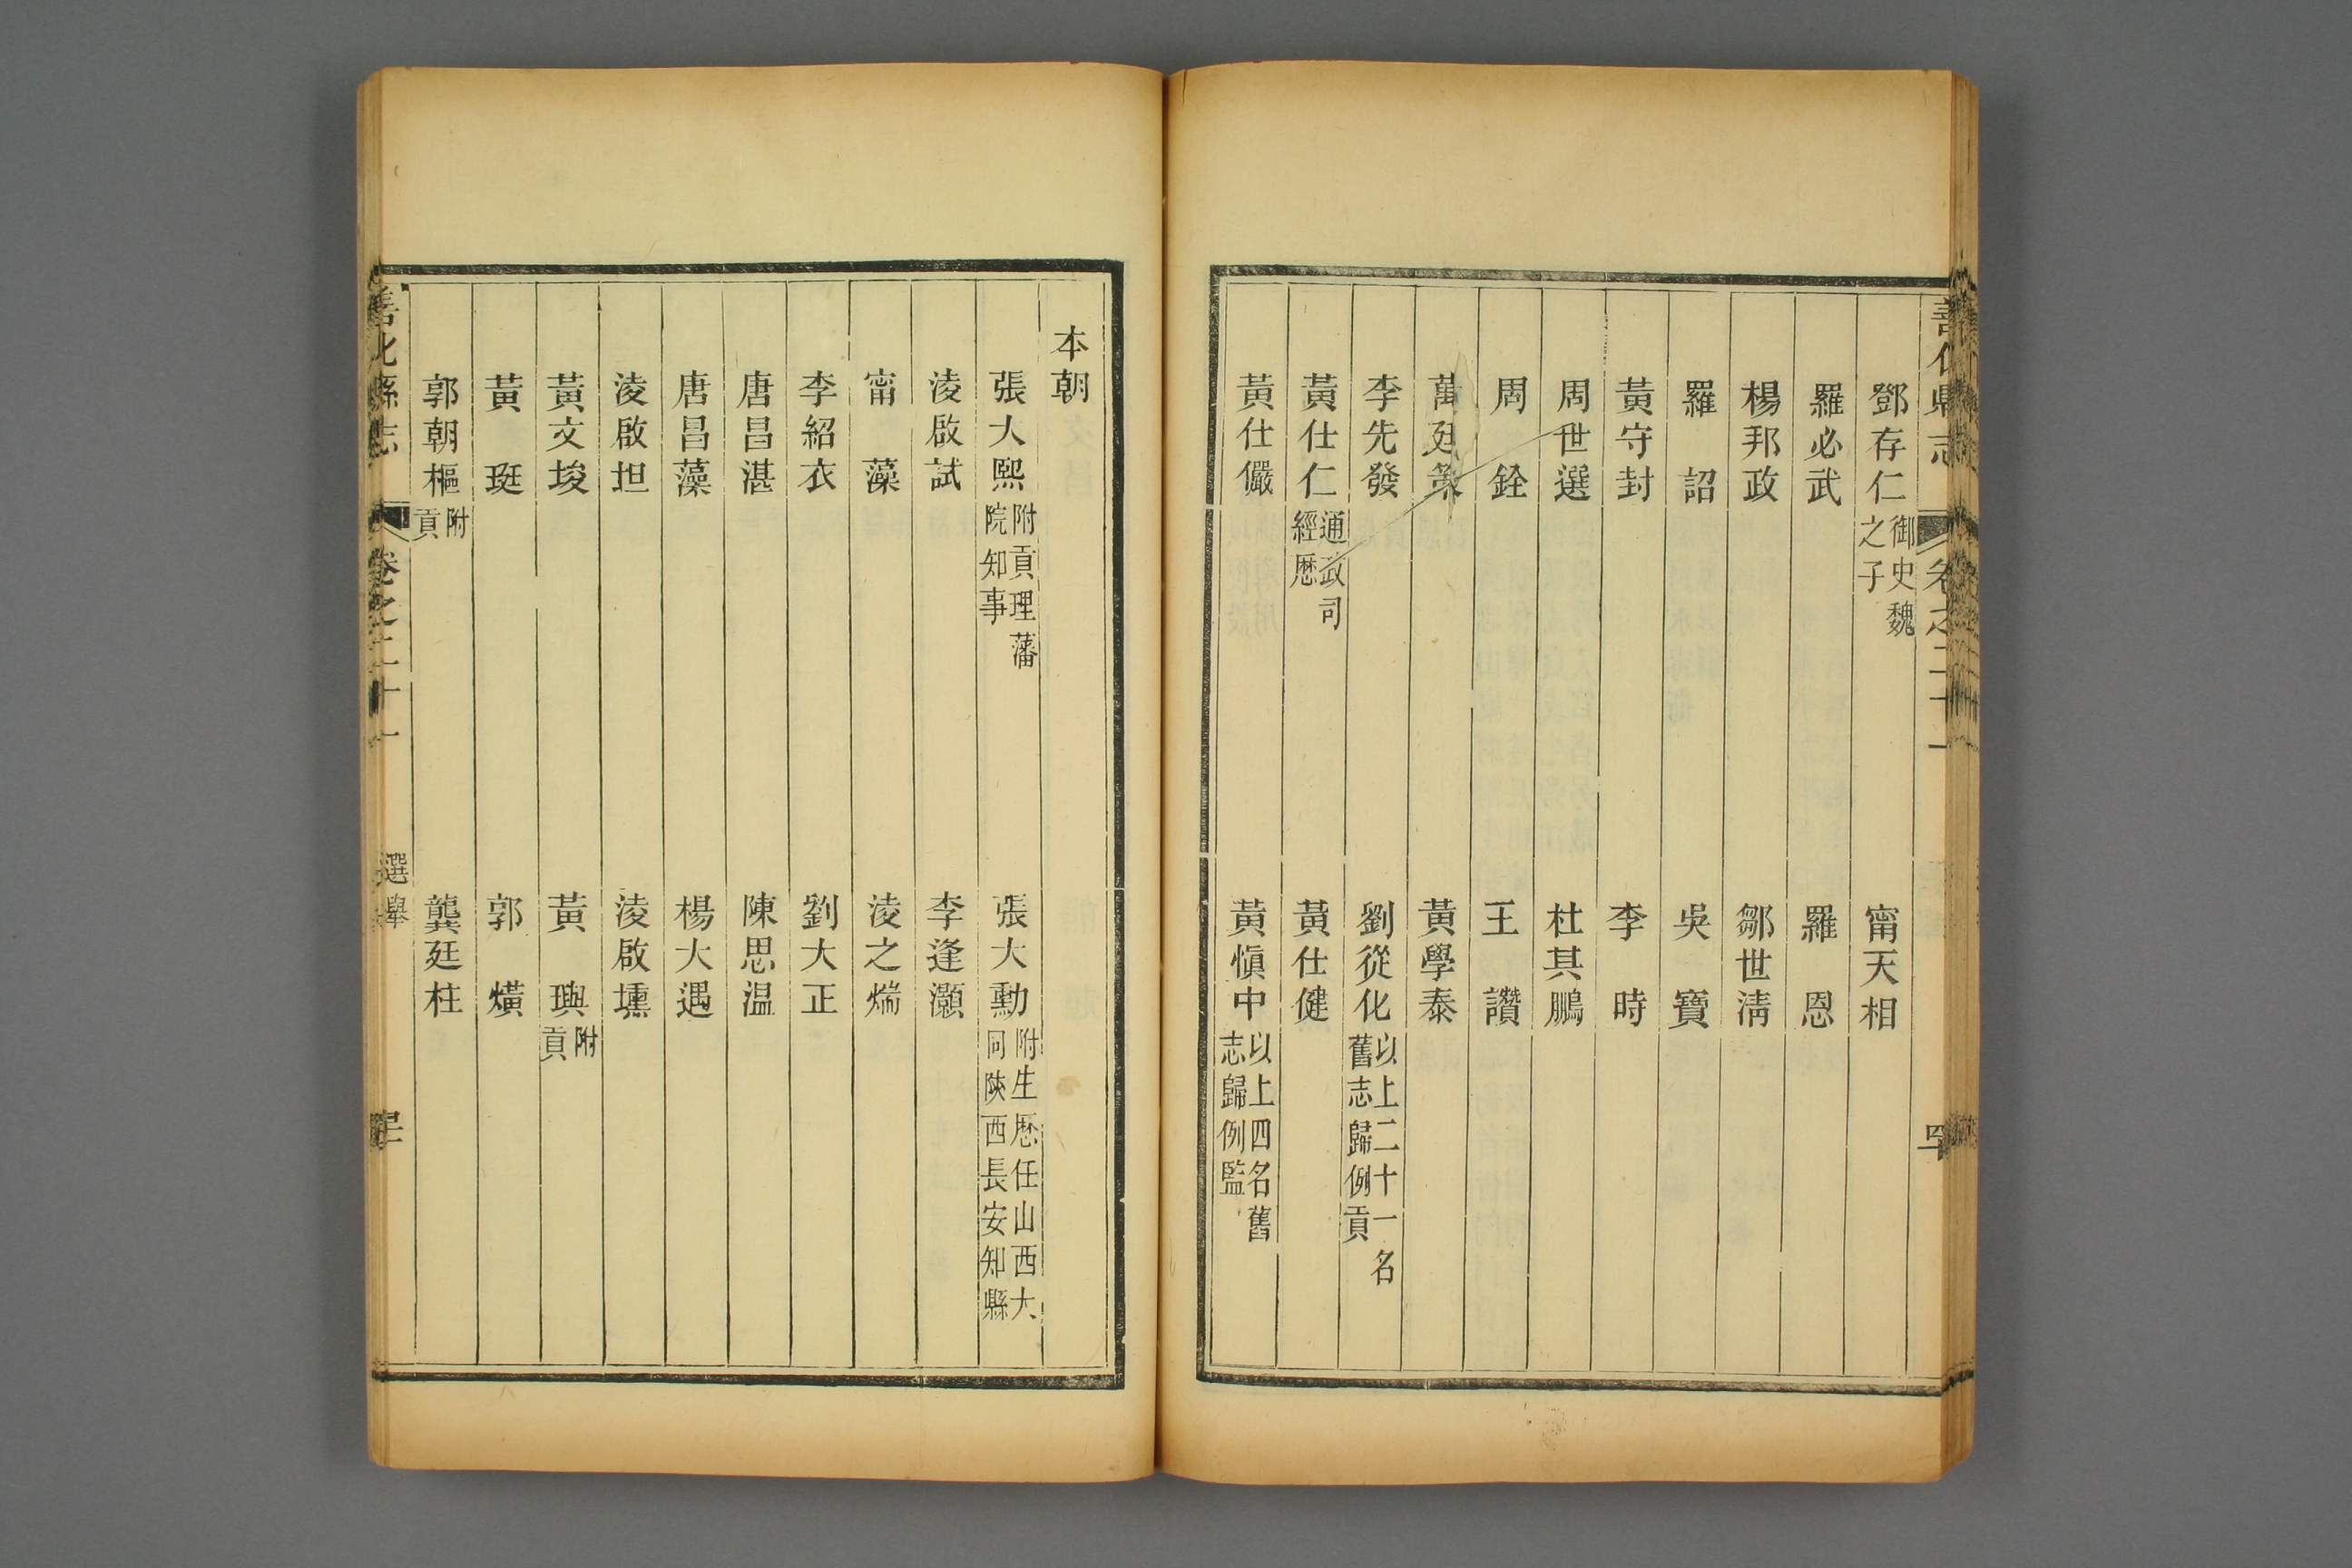 鄧存仁御史魏之子　甯天相
羅必武　羅恩
楊邦政　鄒世淸
羅詔　吳寶
黃守封　李時
周世選　杜其鵬
周銓　王讚
萬廷策　黃學泰
李先發　劉從化以上二十一名舊志歸例貢
黃仕仁通政司經歷　黃仕健
黃仕儼　黃愼中以上四名舊志歸例監
本朝
張大熙附貢理藩院知事　張大勳附生歷任山西大同陝西長安知縣
淩啟試　李逢灝
甯藻　淩之煓
李紹衣　劉大正
唐昌湛　陳思溫
唐昌藻　楊大遇
淩啟坦　淩啟壎
黃文埈　黃璵附貢
黃珽　郭熿
郭朝樞附貢　龔廷柱
善化縣志　卷之二十一　選舉